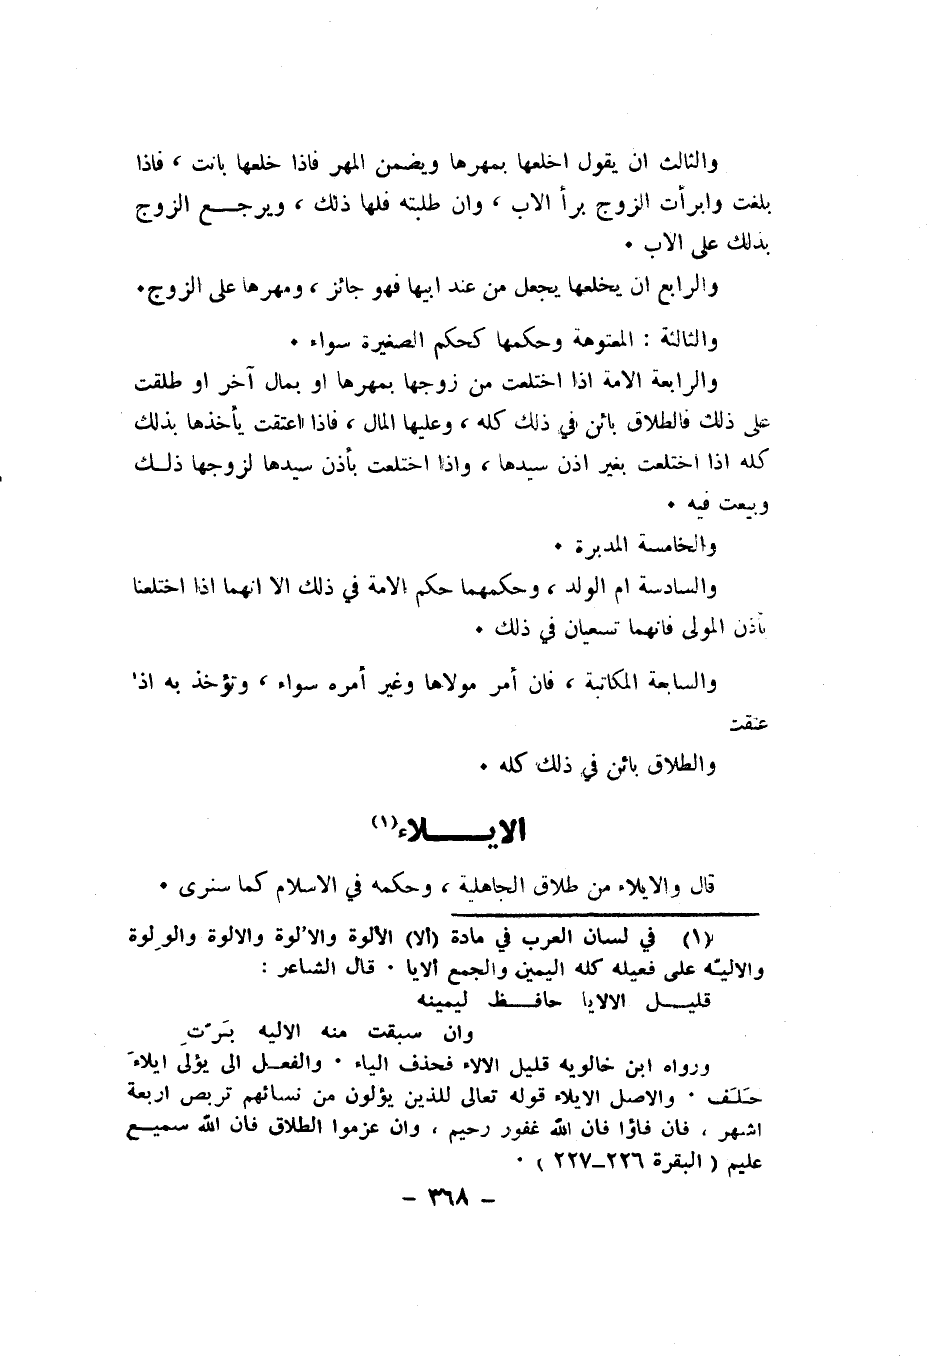 والثالث ان يقول اخلعها بمهرها ويضمن المهر فاذا خلعها بانت ، فاذا
بلغت وابرأت الزوج برأ الاب ، وان طلبته فلها ذلك ، ويرجـــع الزوج
بذلك على الاب ٠
والرابع ان يخلعها يجعل من عند ابيها فهو جائز ، ومهرها على الزوج٠
والثالثة : المعتوهة وحكمها كحكم الصغيرة سواء ٠
والرابعة الامة اذا اختلعت من زوجها بمهرها او بمال آخر او طلقت
على ذلك فالطلاق بائن في ذلك كله ، وعليها المال ، فاذا اعتقت يأخذها بذلك
كله اذا اختلعت بغير اذن سيدها ، واذا اختلعت بأذن سيدها لزوجها ذلـك
وبيعت فيه ٠
والخامسة المدبرة ٠
والسادسة ام الولد ، وحكمهما حكم الامة في ذلك الا انهما اذا اختلعتا
بأذن المولى فانهما تسعيان في ذلك ٠
والسابعة المكاتبة ، فان أمر مولاها وغير أمره سواء ، وتؤخذ به اذا
عتقت
والطلاق بائن في ذلك كله ٠
الايـــــلاء(١)
قال والايلاء من طلاق الجاهلية ، وحكمه في الاسلام كما سنرى ٠
(١) في لسان العرب في مادة (ألا) الألوة والا'لوة والالوة والوِلوة
والاليّه على فعيله كله اليمين والجمع ألايا ٠ قال الشاعر :
قليـــل الالايا حافـــظ ليمينه
وان سبقت منه الاليه بَرّتِ
ورواه ابن خالويه قليل الالاء فحذف الياء ٠ والفعـل الى يؤلى ايلاءَ
حَلَف ٠ والاصل الايلاء قوله تعالى للذين يؤلون من نسائهم تربص اربعة
اشهر ، فان فاؤا فان الله غفور رحيم ، وان عزموا الطلاق فان الله سميـع
عليم ( البقرة ٢٢٦–٢٢٧ ) ٠
– ٣٦٨ –